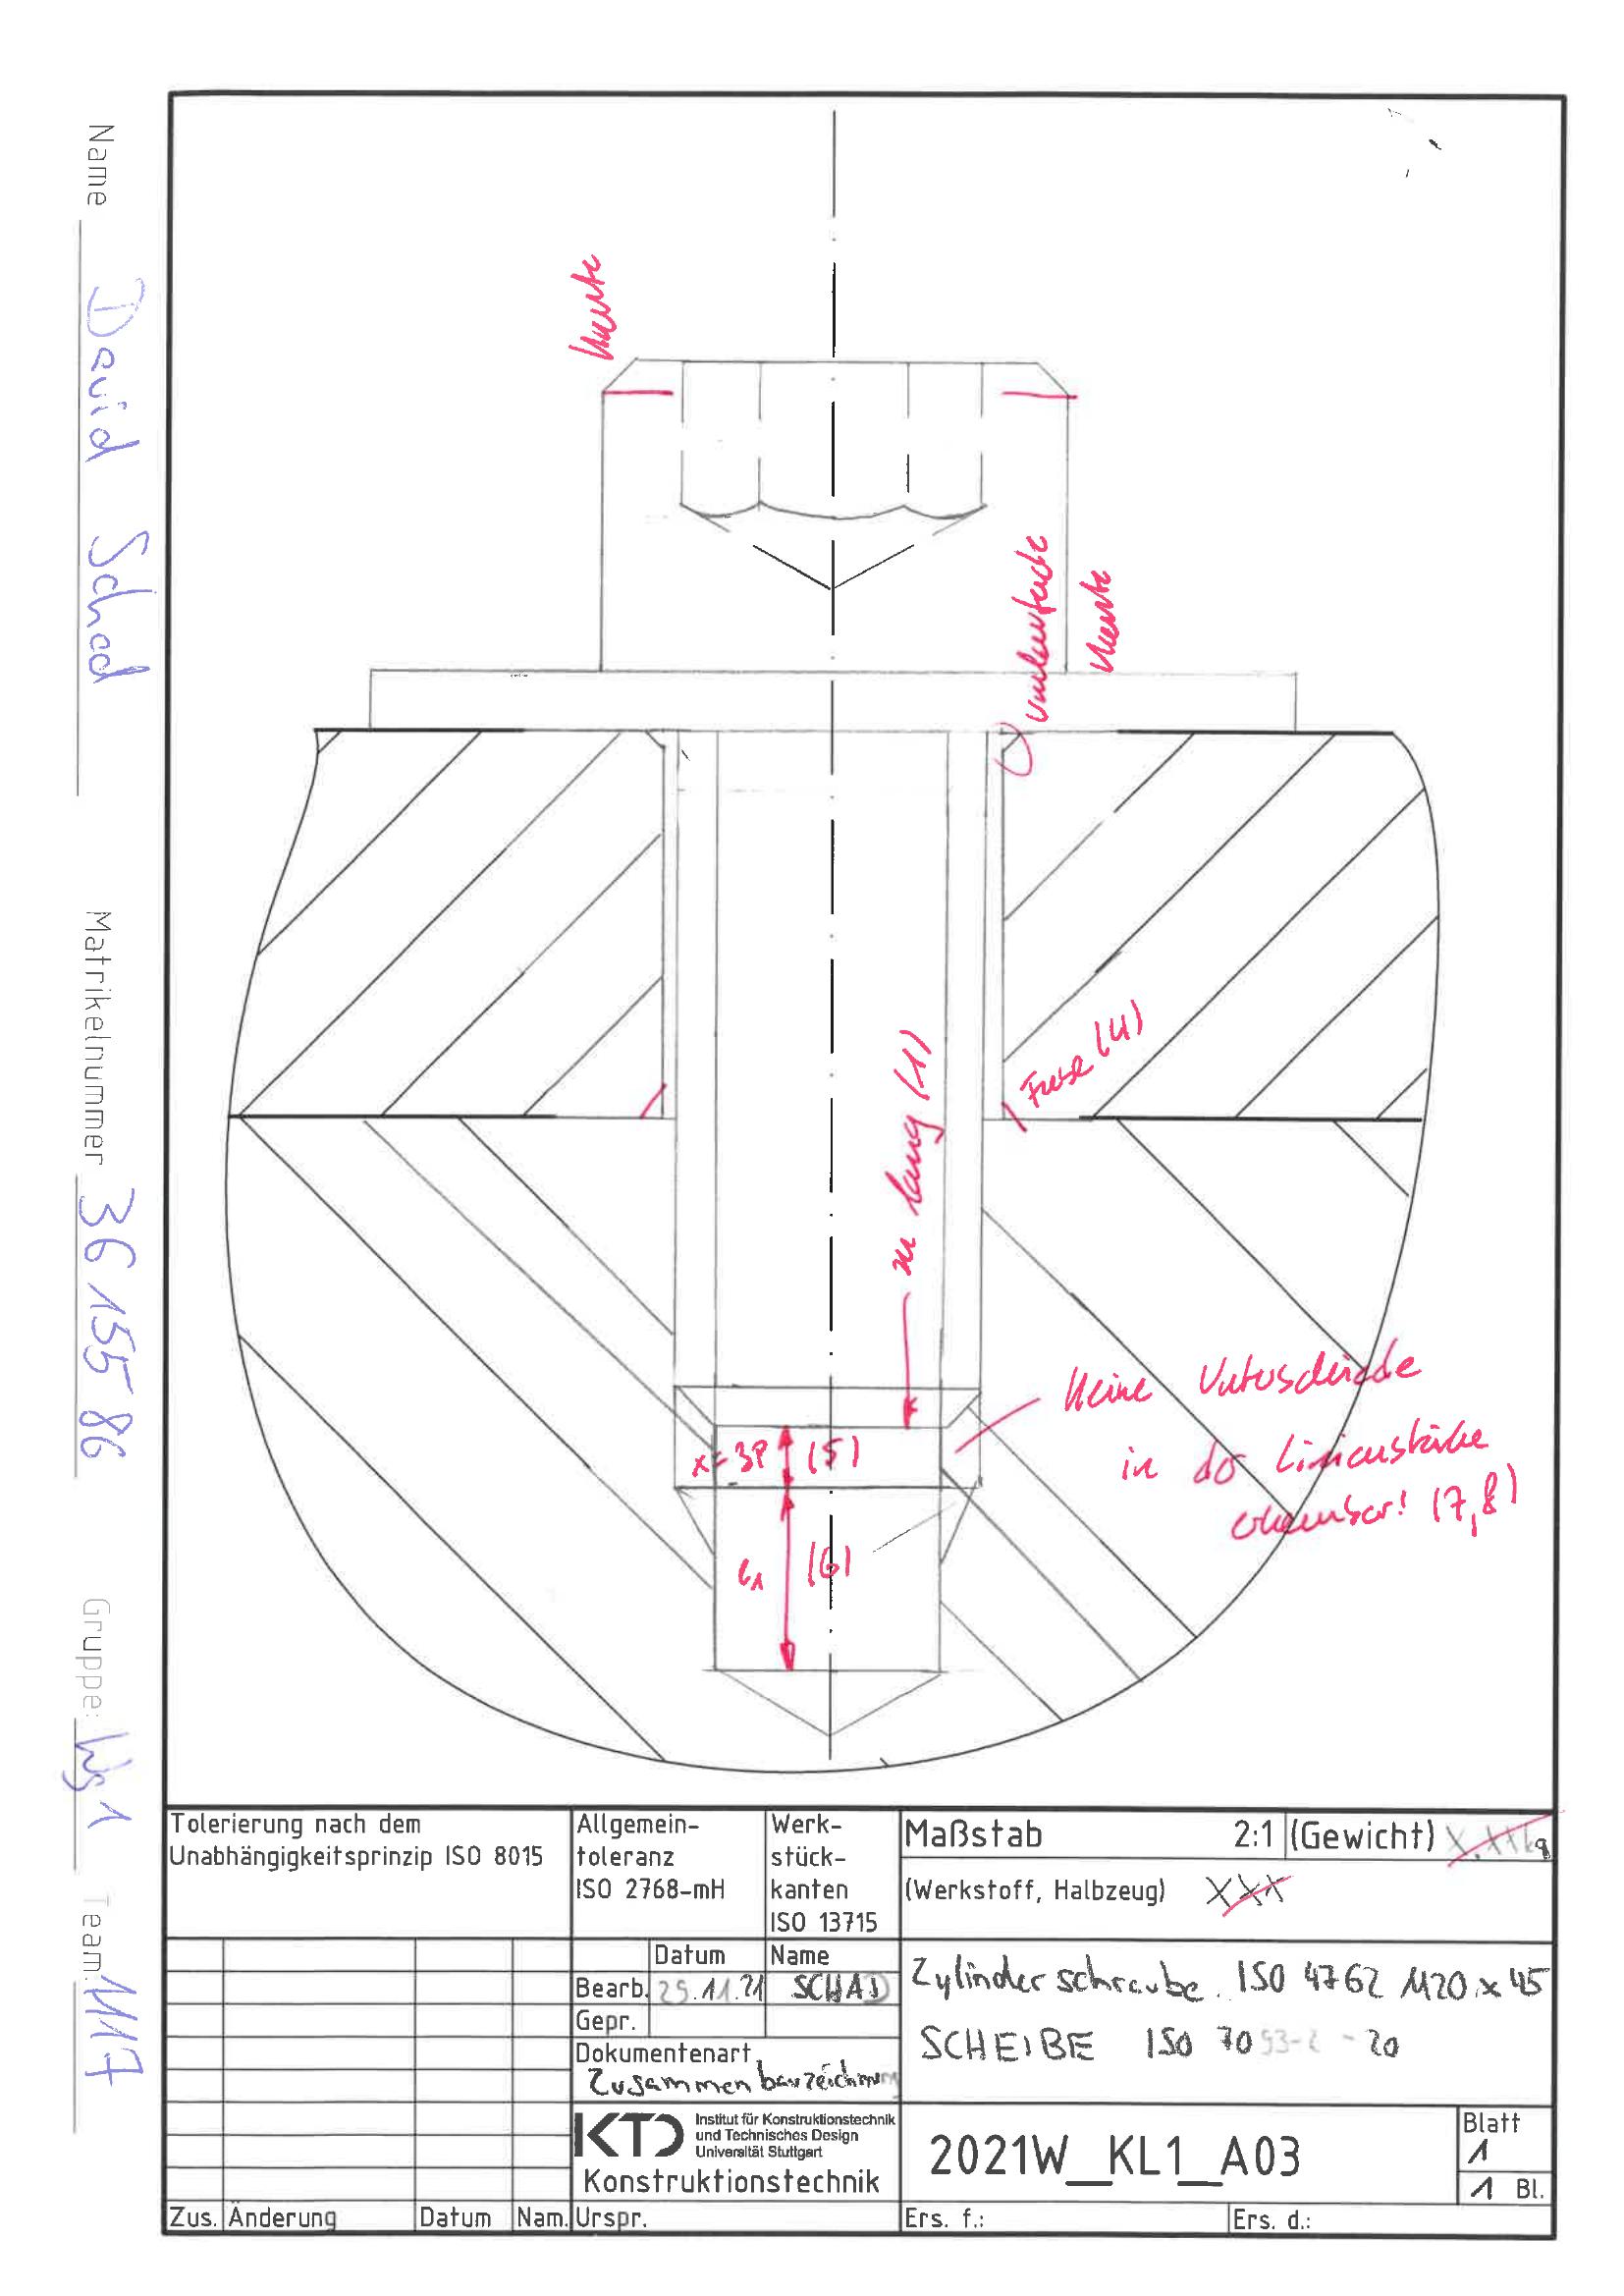 Name David Schad
Matrikelnummer 3615586
Gruppe: Ws 1 Team: M17
Kante
umlaufende
Kante
Fase (4)
zu lang (1)
x=3P (5)
e1 (6)
Keine Unterschiede
in der Linienstärke
erkennbar! (7,8)
Tolerierung nach dem
Unabhängigkeitsprinzip ISO 8015
Allgemein-
toleranz
ISO 2768-mH
Werk-
stück-
kanten
ISO 13715
Maßstab 2:1 (Gewicht) X.XXkg
(Werkstoff, Halbzeug) XXX
Datum Name
Bearb. 29.11.21 SCHAD
Gepr.
Dokumentenart
Zusammenbauzeichnung
Zylinderschraube ISO 4762 M20 x 45
SCHEIBE ISO 7093-2 - 20
KTD
Institut für Konstruktionstechnik
und Technisches Design
Universität Stuttgart
Konstruktionstechnik
2021W_KL1_A03
Blatt
1
1 Bl.
Zus. Änderung Datum Nam. Urspr. Ers. f.: Ers. d.: